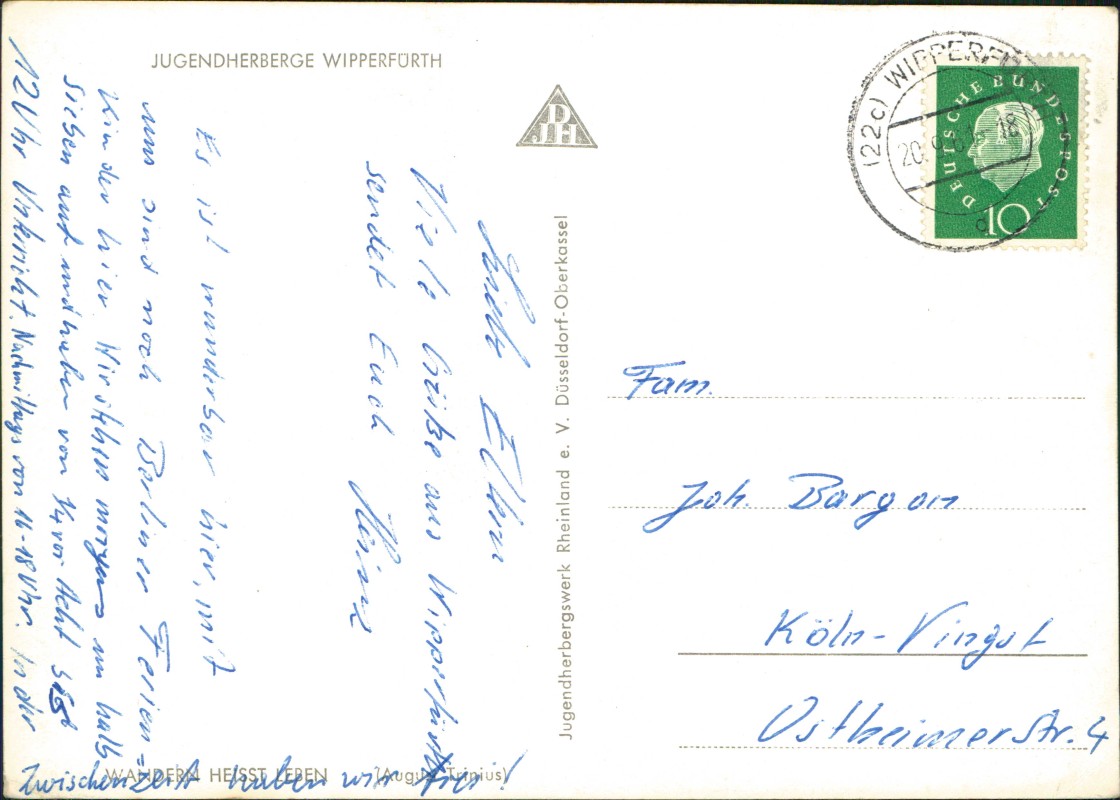 JUGENDHERBERGE WIPPERFÜRTH
DJH
(22c) WIPPERF
20. 9. 18
DEUTSCHE BUNDESPOST
10
Liebe Eltern
Viele Grüße aus Wipperfürth
sendet Euch Heinz
Es ist wunderbar hier, mit
uns sind noch Berliner Ferien=
Kinder hier. Wir stehen morgens um halb
sieben auf und haben von ¼ vor Acht bis
12 Uhr Unterricht. Nachmittags von 16-18 Uhr. In der
Zwischenzeit haben wir frei!
WANDERN HEISST LEBEN (August Trinius)
Jugendherbergswerk Rheinland e. V. Düsseldorf-Oberkassel
Fam.
Joh. Bargon
Köln-Vingst
Ostheimerstr. 4